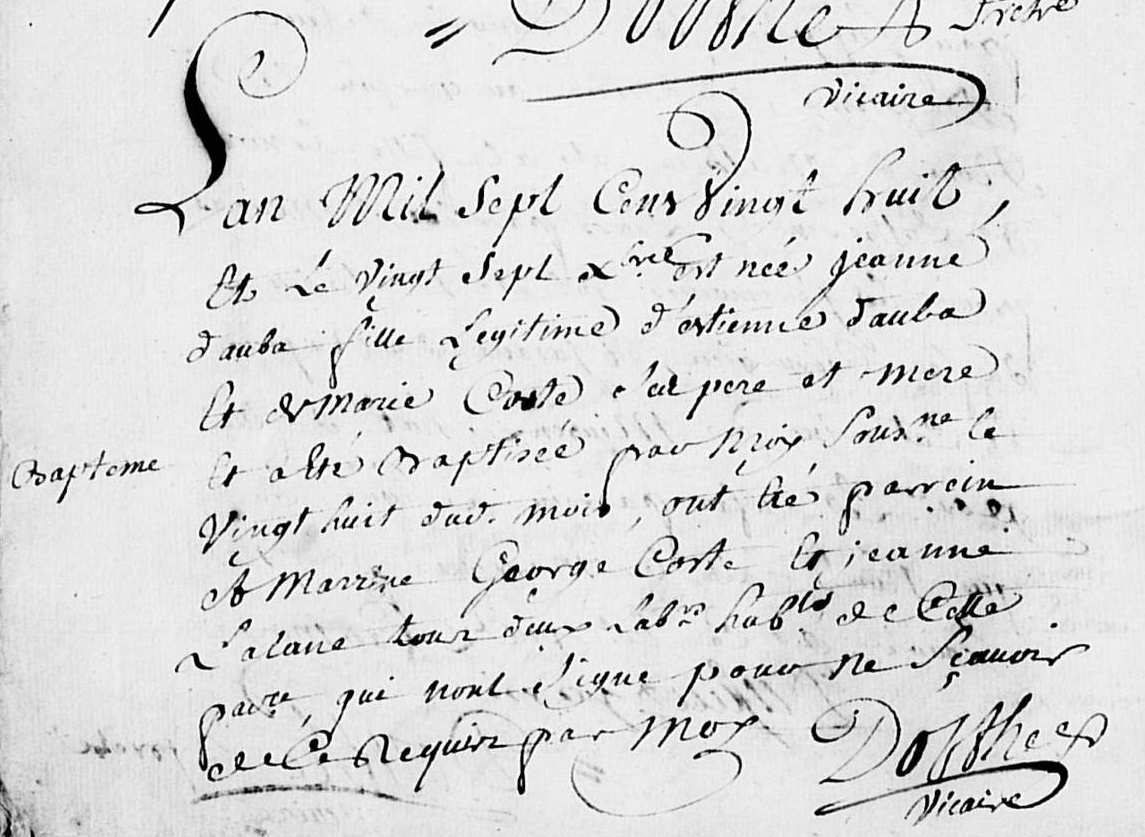 Prêtre
vicaire
Lan Mil Sept Cens vingt huit,
Et Le vingt Sept Xbre est née jeanne
dauba fille Legitime d'estienne dauba
Et de marie Coste ses pere et mere
Bapteme
Et a Eté Baptisée par Moy Souss.ne le
vingt huit dud. mois, ont Eté parrein
Et Marrine George Coste Et jeanne
Lalane tous deux Lab.rs hab.ts de Celle
par.re qui nont signe pour ne Sçavoir
de Ce Requis par Moy
vicaire